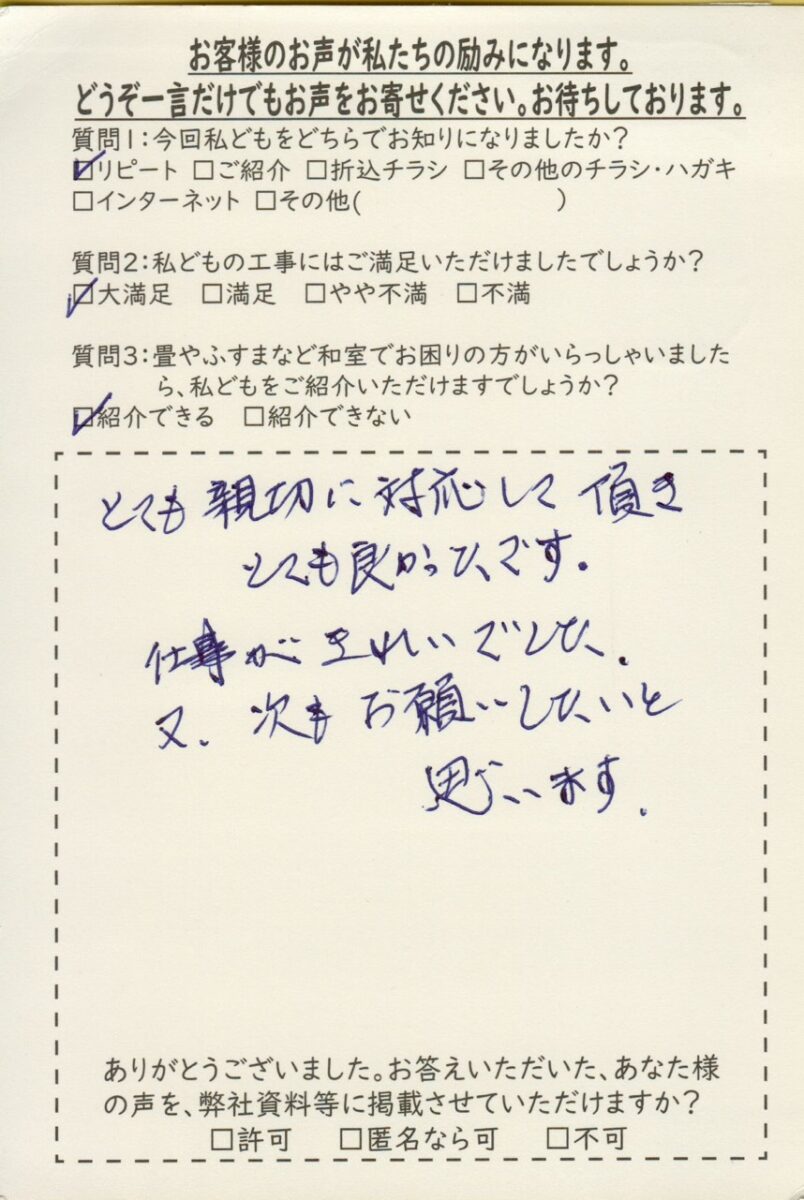 お客様のお声が私たちの励みになります。
どうぞ一言だけでもお声をお寄せください。お待ちしております。
質問1:今回私どもをどちらでお知りになりましたか?
☑リピート □ご紹介 □折込チラシ □その他のチラシ・ハガキ
□インターネット □その他( )
質問2:私どもの工事にはご満足いただけましたでしょうか?
☑大満足 □満足 □やや不満 □不満
質問3:畳やふすまなど和室でお困りの方がいらっしゃいました
ら、私どもをご紹介いただけますでしょうか?
☑紹介できる □紹介できない
とても親切に対応して頂き
とても良かったです。
仕事がきれいでした。
又、次もお願いしたいと
思います。
ありがとうございました。お答えいただいた、あなた様
の声を、弊社資料等に掲載させていただけますか?
□許可 □匿名なら可 □不可